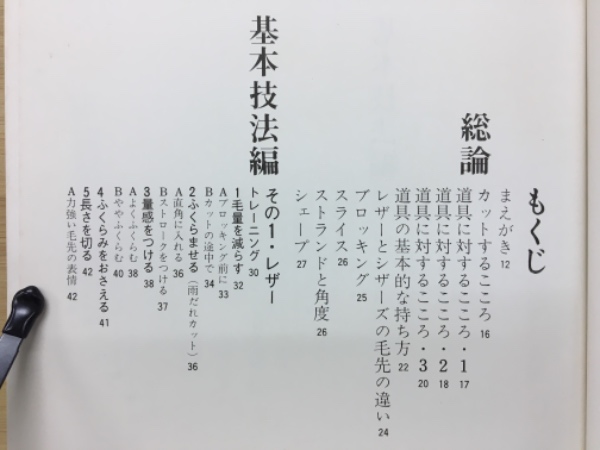 もくじ
総論
まえがき 12
カットするこころ 16
道具に対するこころ・1 17
道具に対するこころ・2 18
道具に対するこころ・3 20
道具の基本的な持ち方 22
レザーとシザーズの毛先の違い 24
ブロッキング 25
スライス 26
ストランドと角度 26
シェープ 27
基本技法編
その1・レザー
トレーニング 30
1毛量を減らす 32
Aブロッキング前に 33
Bカットの途中で 34
2ふくらませる(雨だれカット) 36
A直角に入れる 36
Bストロークをつける 37
3量感をつける 38
Aよくふくらむ 38
Bややふくらむ 40
4ふくらみをおさえる 41
5長さを切る 42
A力強い毛先の表情 42